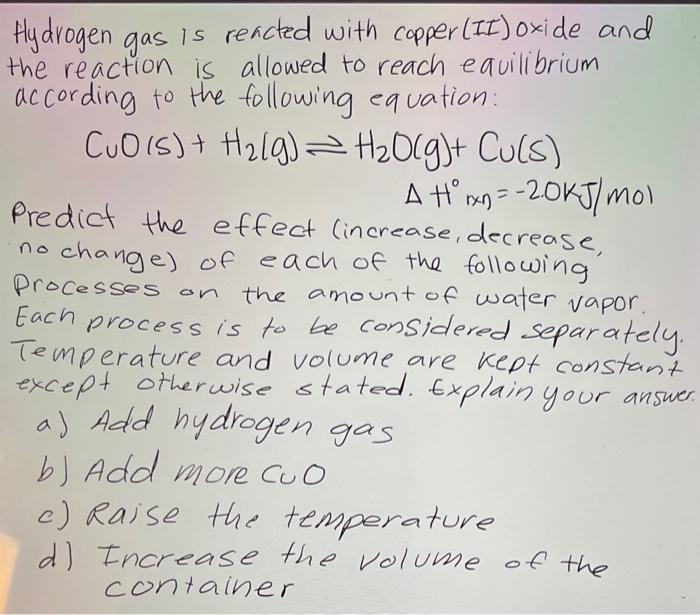 Hydrogen gas is reacted with copper(II)oxide and
the reaction is allowed to reach equilibrium
according to the following equation:
CuO(s) + H₂(g) ⇌ H₂O(g) + Cu(s)
ΔH°rxn = -2.0KJ/mol
Predict the effect (increase, decrease,
no change) of each of the following
processes on the amount of water vapor.
Each process is to be considered separately.
Temperature and volume are kept constant
except otherwise stated. Explain your answer.
a) Add hydrogen gas
b) Add more CuO
c) Raise the temperature
d) Increase the volume of the
container